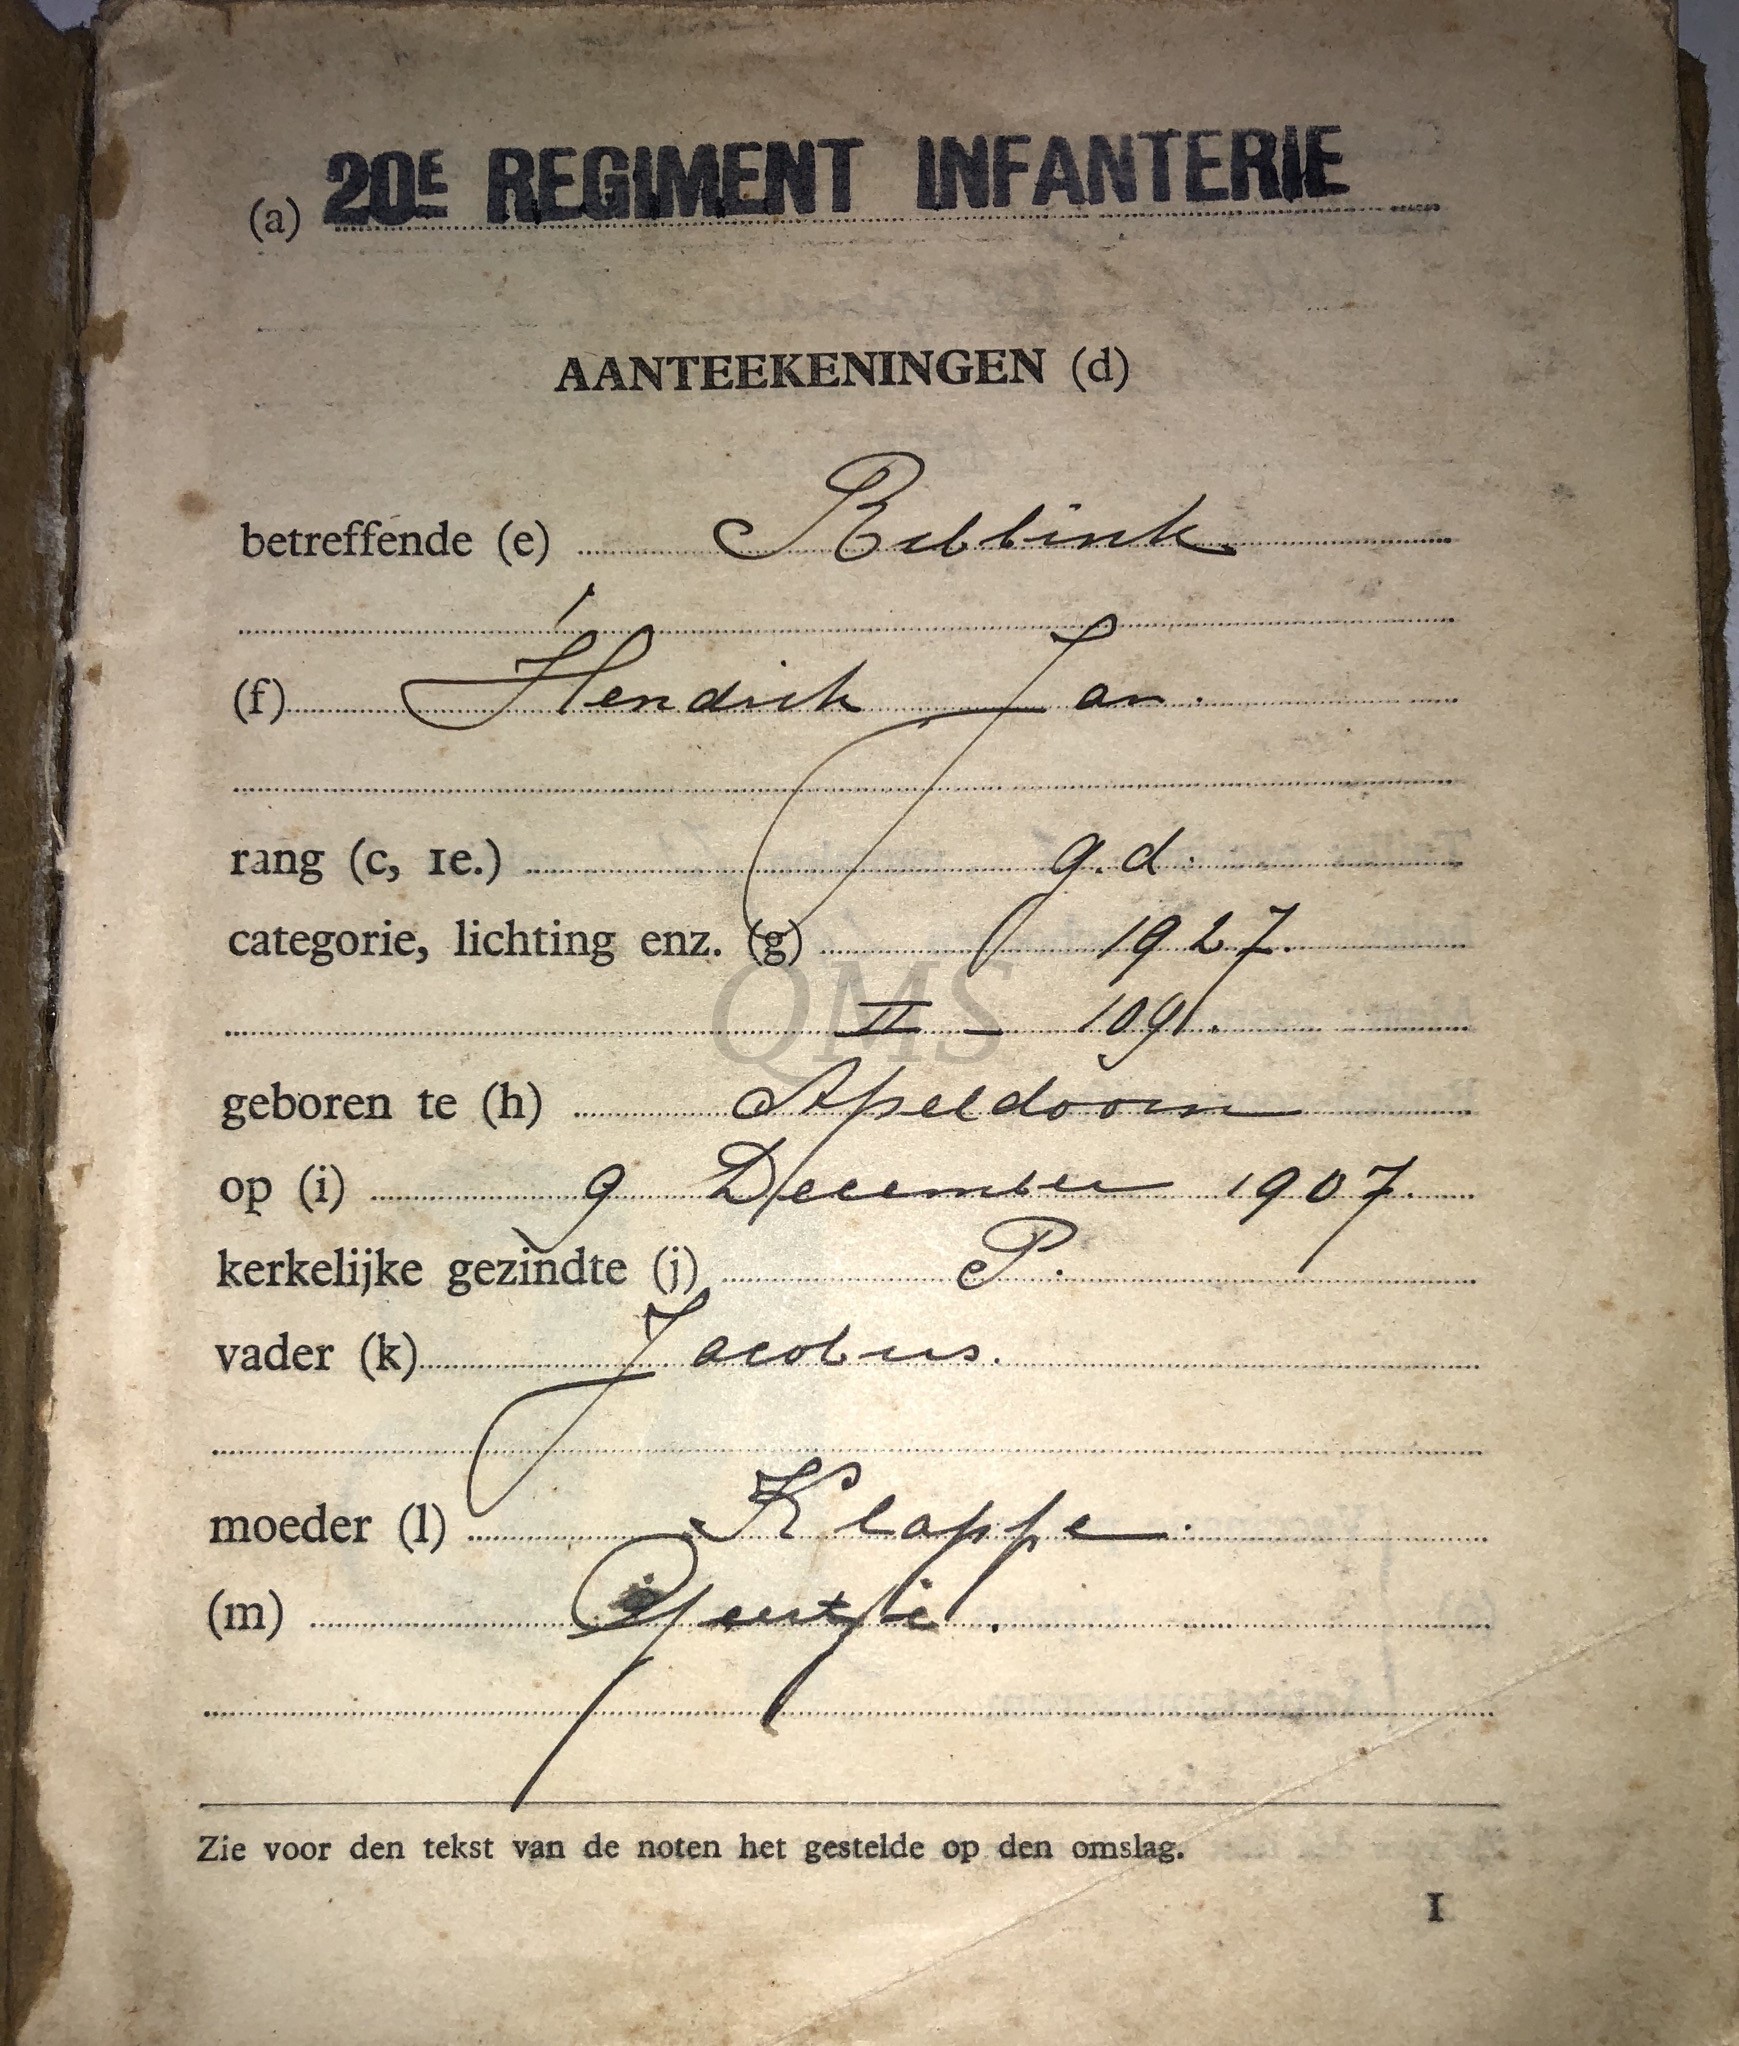 (a) 20E REGIMENT INFANTERIE
AANTEEKENINGEN (d)
betreffende (e) Rebbink
(f) Hendrik Jan.
rang (c, 1e.) g.d.
categorie, lichting enz. (g) 1927.
QMS
II - 109.
geboren te (h) Apeldoorn
op (i) 9 December 1907.
kerkelijke gezindte (j) P.
vader (k) Jacobus.
moeder (l) Klappe.
(m) Geertje.
Zie voor den tekst van de noten het gestelde op den omslag.
1